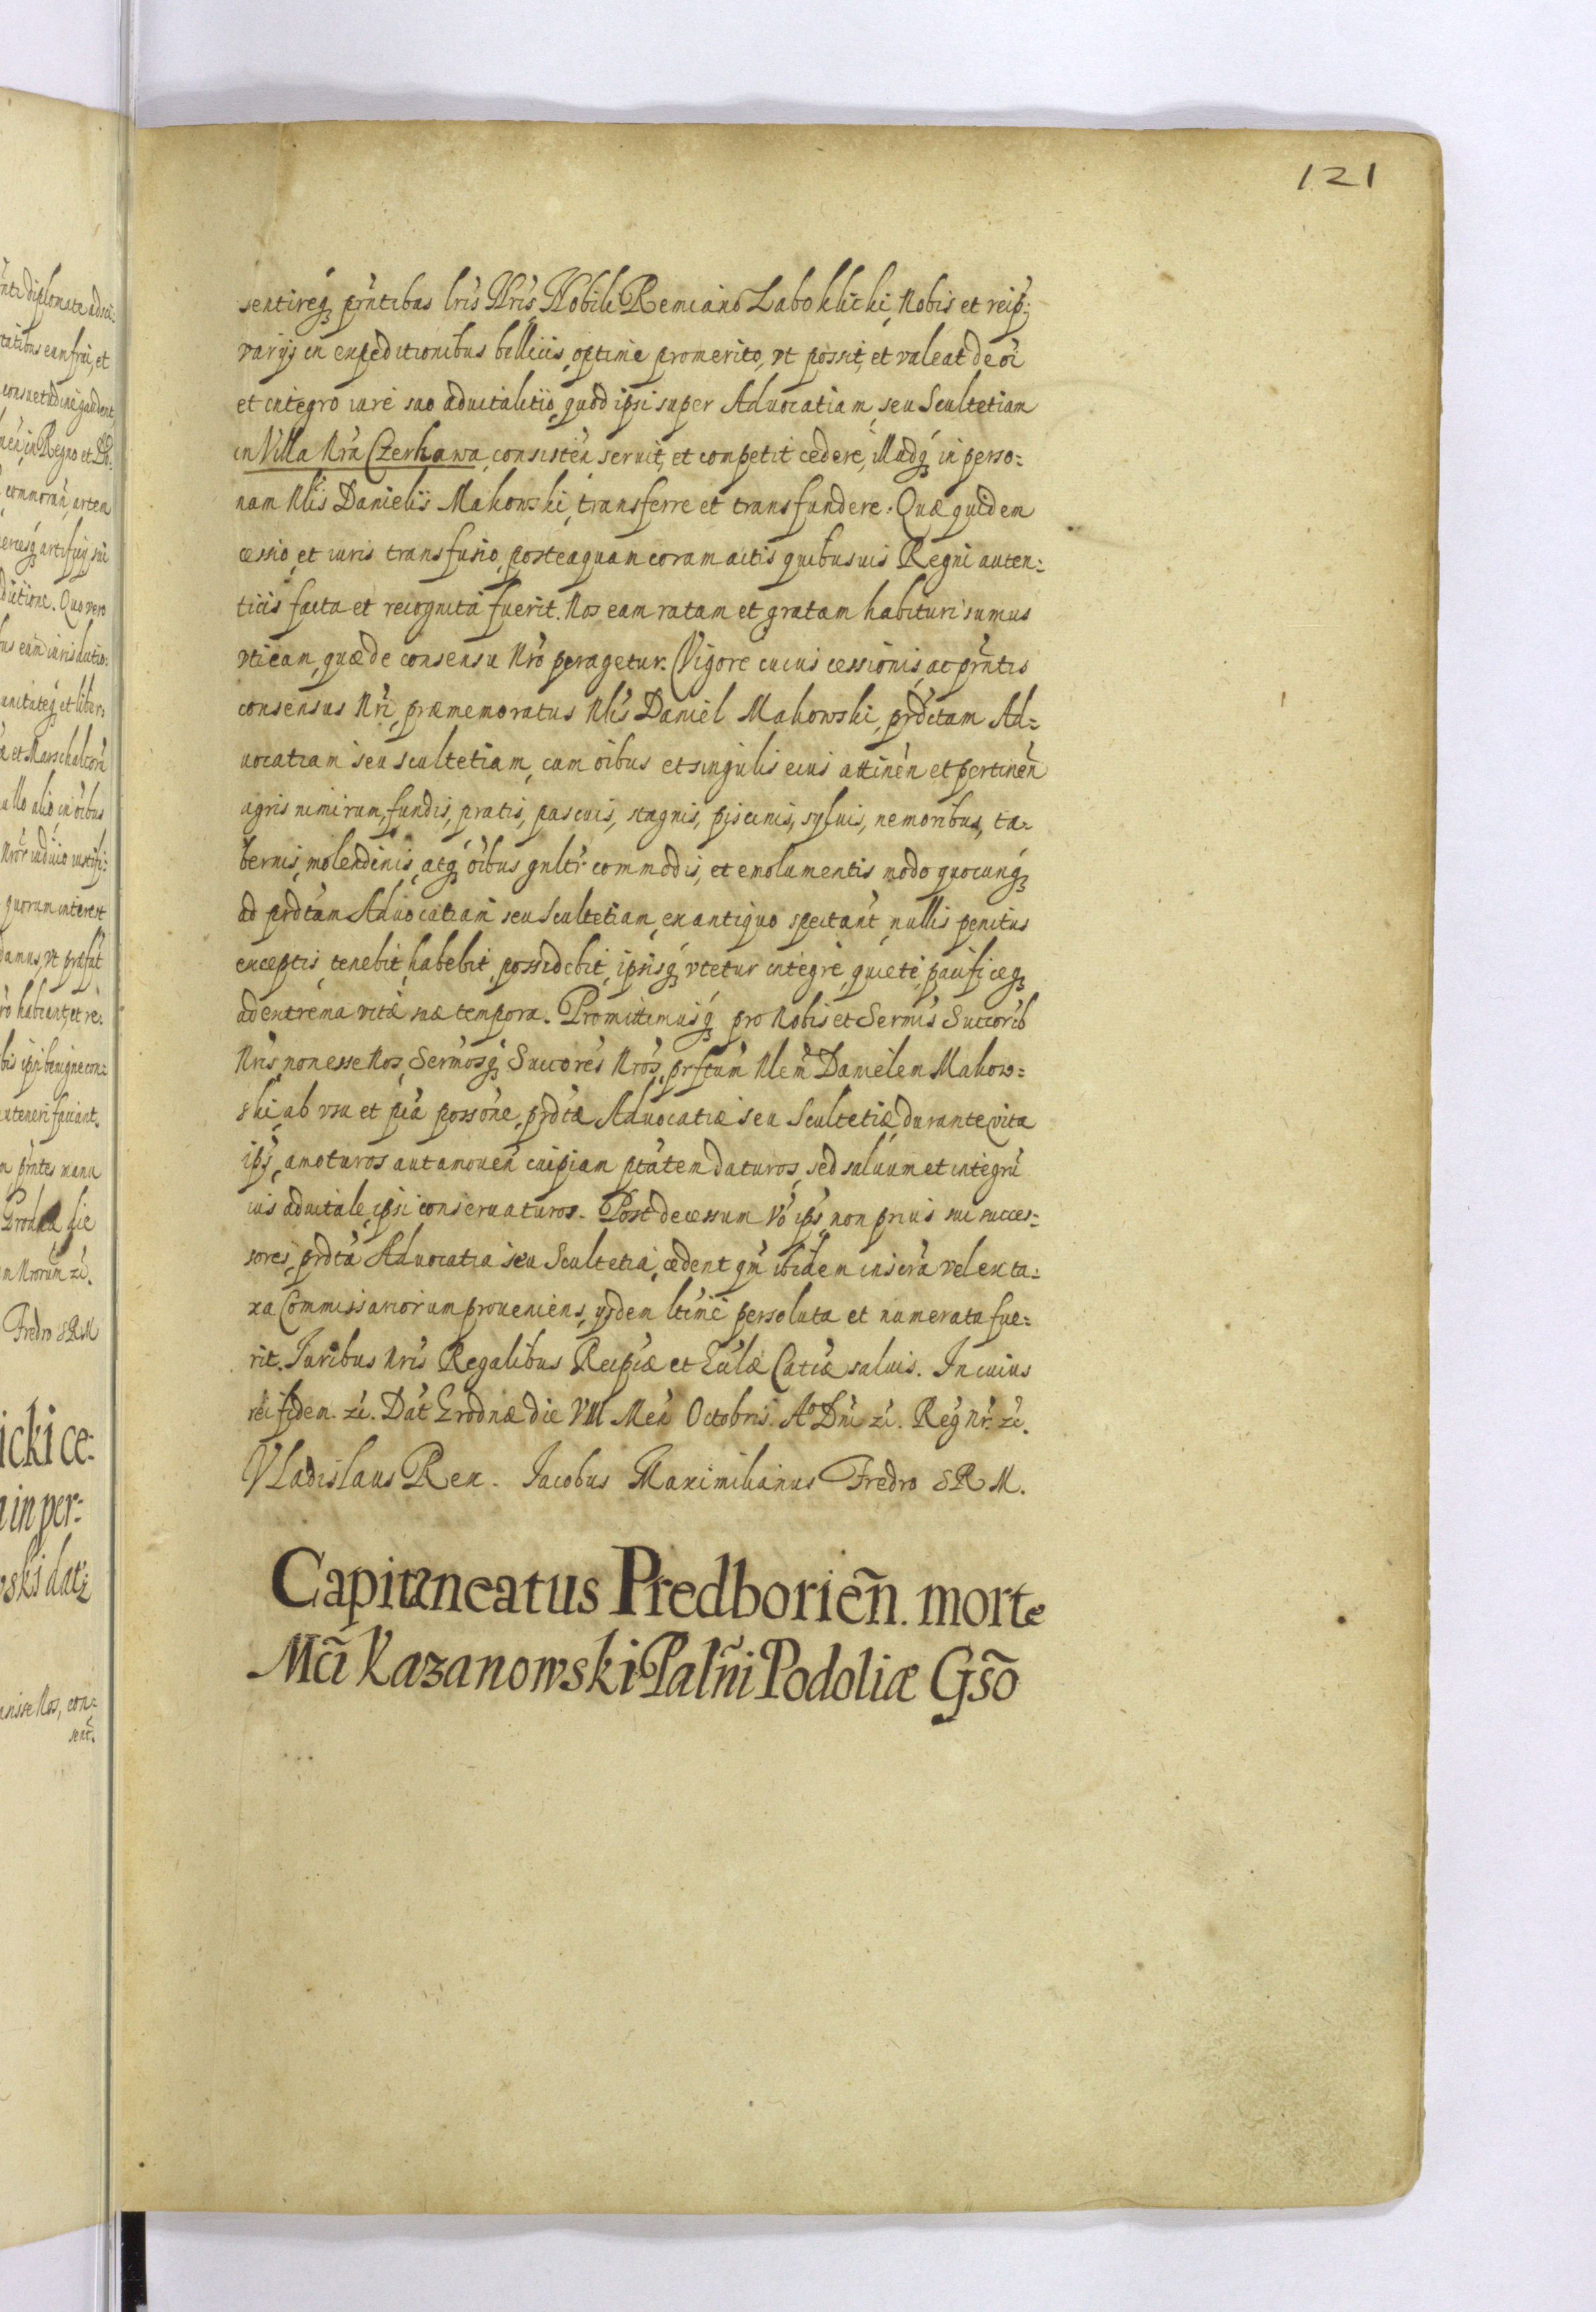 121
sentireq́ꝫ prn̄tibus lrīs Nrīs, Nobili Remiano Zaboklicki, Nobis et reip:
varijs in expeditionibus bellicis, optime promerito, vt possit, et valeat de oī
et integro iure suo aduitalitio, quod ipsi super Aduocatiam, seu Scultetiam
in Villa Nrā Czerkawa, consisteñ seruit, et competit cedere, illudq́ꝫ in perso:
nam Nlīs Danielis Makowski, transferre et transfundere. Quæ quidem
cessio, et iuris transfusio, posteaquam coram actis quibusuis Regni auten:
ticis facta et recognita fuerit. Nos eam ratam et gratam habituri sumus
vticam, quæ de consensu Nrō peragetur. Vigore cuius cessionis, ac prn̄tis
consensus Nrī, præmemoratus Nlīs Daniel Makowski, prd̄ctam Ad:
uocatiam seu scultetiam, cum oībus et singulis eius attineñ et pertineñ
agris nimirum, fundis, pratis, pascuis, stagnis, piscinis, syluis, nemoribus, ta:
bernis, molendinis, atq́ꝫ oībus gnltr̄ commodis, et emolumentis modo quocunq́ꝫ
ad prdtām Aduocatiam seu Scultetiam, ex antiquo spectañt, nullis penitus
exceptis, tenebit, habebit, possidebit, ipsisq́ꝫ vtetur integre, quiete, pacificeq́ꝫ
ad extrema vitæ suæ tempora. Promittimusq́ꝫ pro Nobis et Sermīs Succorīb
Nrīs, non esse Nos, Sermōsq́ꝫ Succorēs Nrōs, prfctūm Nlem̄ Danielem Makow:
ski, ab vsu et pcā possōne, prdctæ Aduocatiæ seu Scultetiæ, durante vita
ipsī, amoturos aut amoueñ cuipiam ptātem daturos, sed saluum et integrū
ius aduitale, ipsi conseruaturos. Post decessum Vō ipsī, non prius sui succes:
sores, prdctā Aduocatia seu Scultetia, cedent, qm̄ ibidem inscrā vel ex ta:
xa Commissariorum proueniens, ijsdem ltīme persoluta et numerata fue:
rit. Iuribus Nrīs Regalibus Reipcæ et Ecclæ Catcæ saluis. In cuius
rei fidem. zc̄. Dat̄ Grodnæ die VIII Meñ Octobris. Aº Dnī zc̄. Reg̃ Nr̄. zc̄.
VLadislaus Rex. Jacobus Maximilianus Fredro SRM.
Capitaneatus Predborień. morte
Mc̃i Kazanowski Palñi Podoliæ Gsõ